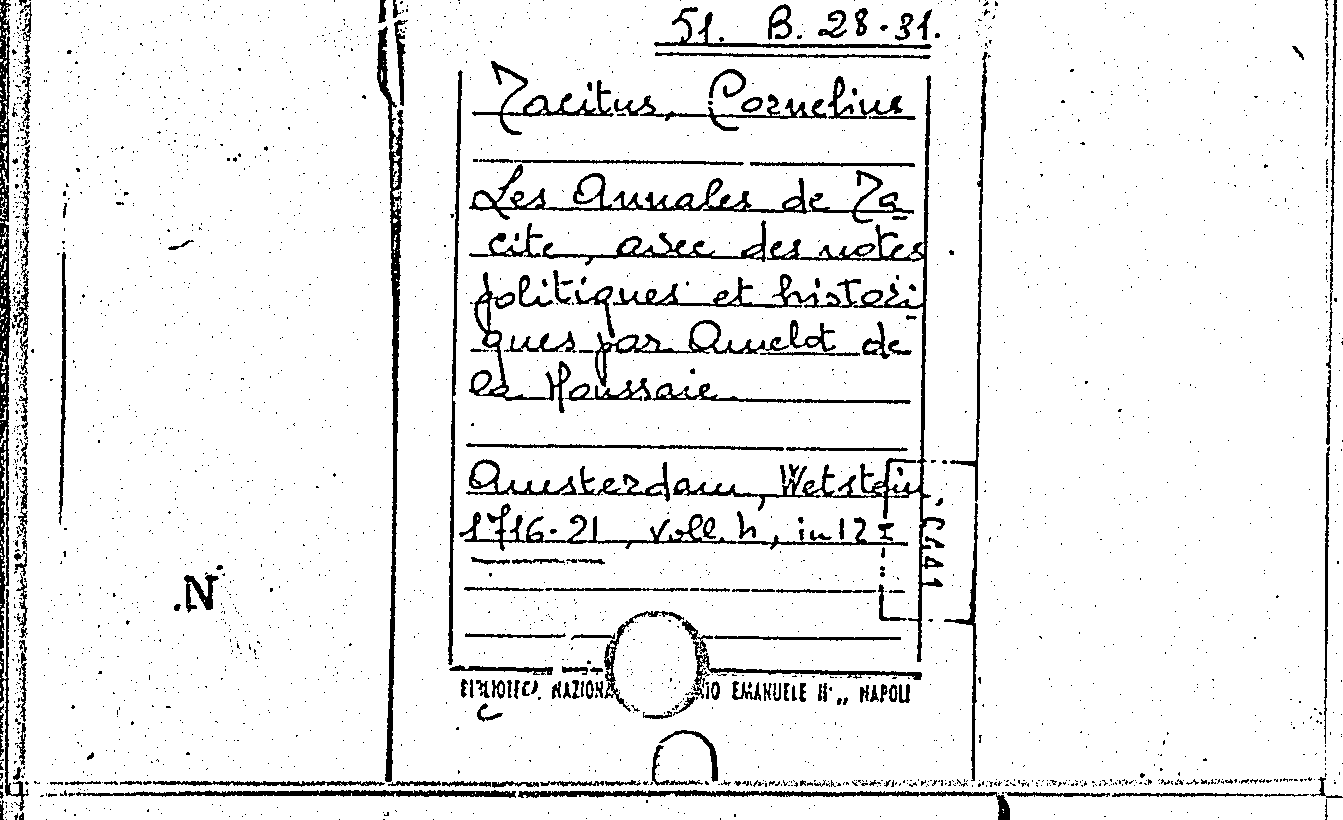 51. B. 28-31.
Tacitus, Cornelius
Les Annales de Ta
cite, avec des notes
politiques et histori
ques par Amelot de
la Houssaie.
Amsterdam, Wetstein,
1716-21, voll. 4, in 12º
BIBLIOTECA NAZIONA IO EMANUELE II", NAPOLI
.N